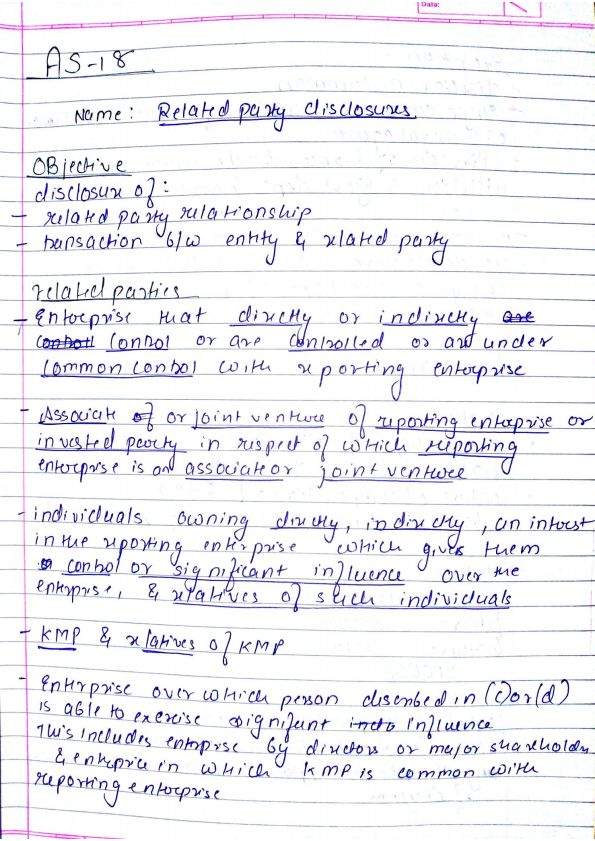 Date:
AS-18
Name: Related party disclosures
OBjective
disclosure of:
- related party relationship
- transaction b/w entity & related party
related parties
- Enterprise that directly or indirectly are
control control or are controlled or are under
common control with reporting enterprise
- Associate of or joint venture of reporting enterprise or
invested party in respect of which reporting
enterprise is an associate or joint venture
- individuals owning directly, indirectly, an interest
in the reporting enterprise which gives them
control or significant influence over the
enterprise, & relatives of such individuals
- KMP & relatives of KMP
- Enterprise over which person described in (c) or (d)
is able to exercise significant influence
This includes enterprise by directors or major shareholders
& enterprise in which KMP is common with
reporting enterprise